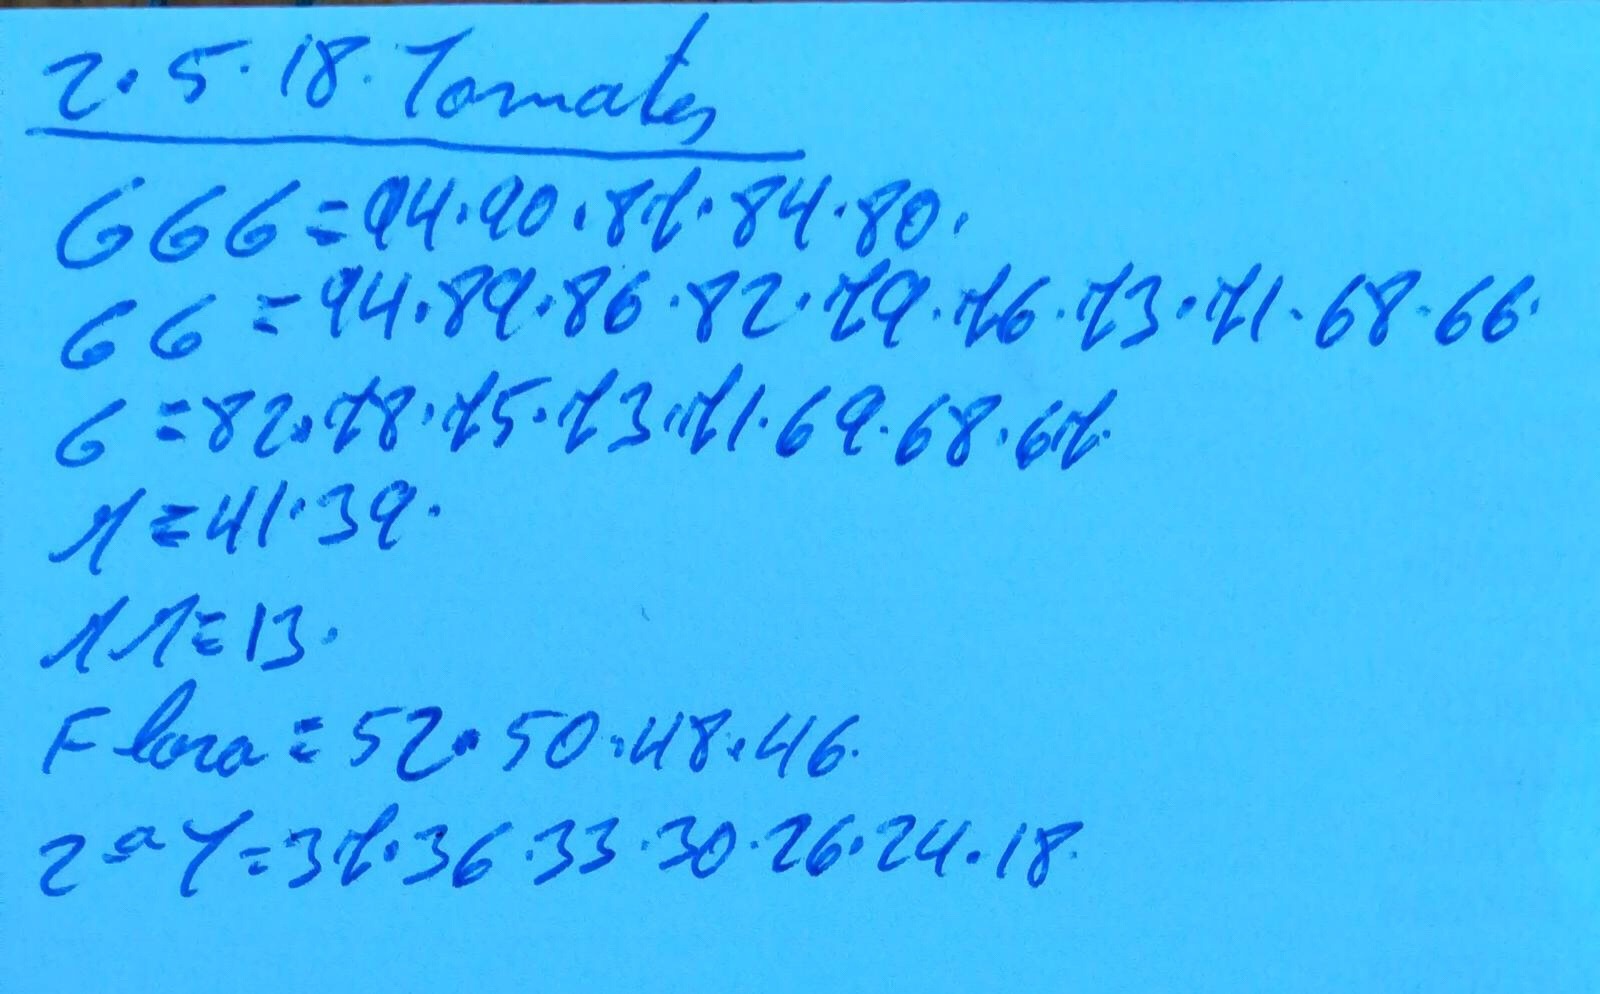 2.5.18. Tomates
GGG=94.90.87.84.80.
GG=94.89.86.82.79.76.73.71.68.66.
G=82.78.75.73.71.69.68.67.
M=41.39.
MM=13.
Flora=52.50.48.46.
2ªT=37.36.33.30.26.24.18.